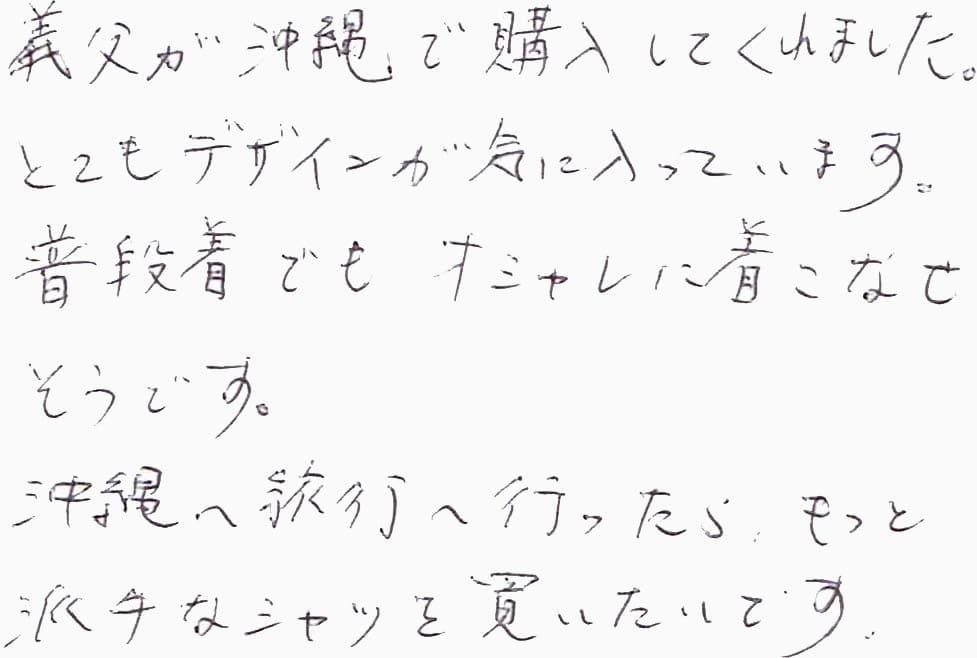 義父が沖縄で購入してくれました。
とてもデザインが気に入っています。
普段着でもオシャレに着こなせ
そうです。
沖縄へ旅行へ行ったら、もっと
派手なシャツを買いたいです.